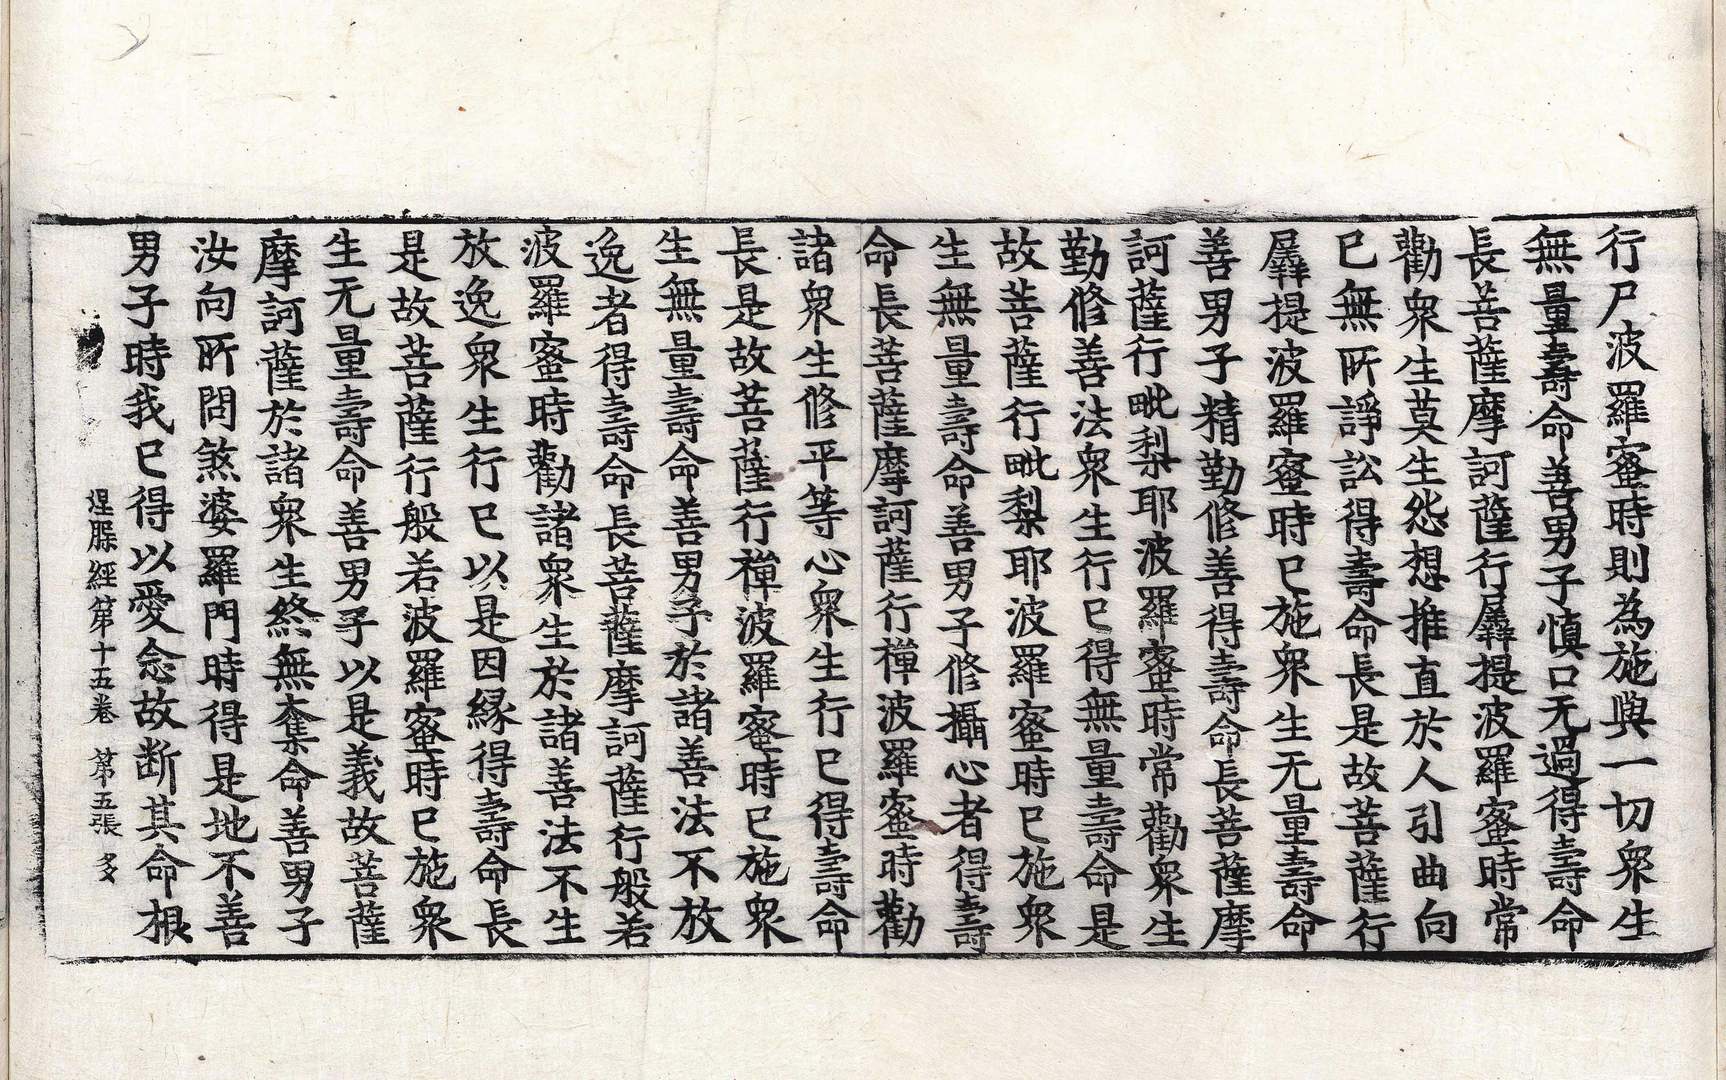 行尸波羅蜜時則為施與一切衆生
無量壽命善男子慎口无過得壽命
長菩薩摩訶薩行羼提波羅蜜時常
勸衆生莫生怨想推直於人引曲向
已無所諍訟得壽命長是故菩薩行
羼提波羅蜜時已施衆生无量壽命
善男子精勤修善得壽命長菩薩摩
訶薩行毗梨耶波羅蜜時常勸衆生
勤修善法衆生行已得無量壽命是
故菩薩行毗梨耶波羅蜜時已施衆
生無量壽命善男子修攝心者得壽
命長菩薩摩訶薩行禪波羅蜜時勸
諸衆生修平等心衆生行已得壽命
長是故菩薩行禪波羅蜜時已施衆
生無量壽命善男子於諸善法不放
逸者得壽命長菩薩摩訶薩行般若
波羅蜜時勸諸衆生於諸善法不生
放逸衆生行已以是因緣得壽命長
是故菩薩行般若波羅蜜時已施衆
生无量壽命善男子以是義故菩薩
摩訶薩於諸衆生終無奪命善男子
汝向所問煞婆羅門時得是地不善
男子時我已得以愛念故断其命根
涅槃經第十五卷 第五張 多